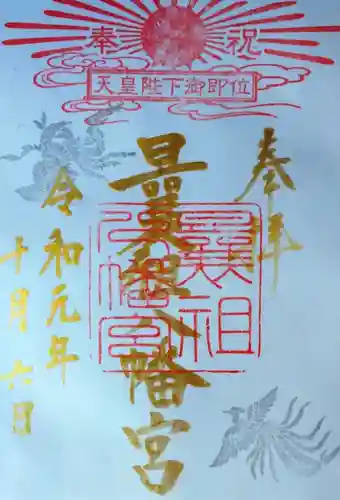 奉祝
天皇陛下御即位
奉拝
曩祖八幡宮
曩祖
八幡宮
令和元年
十月六日